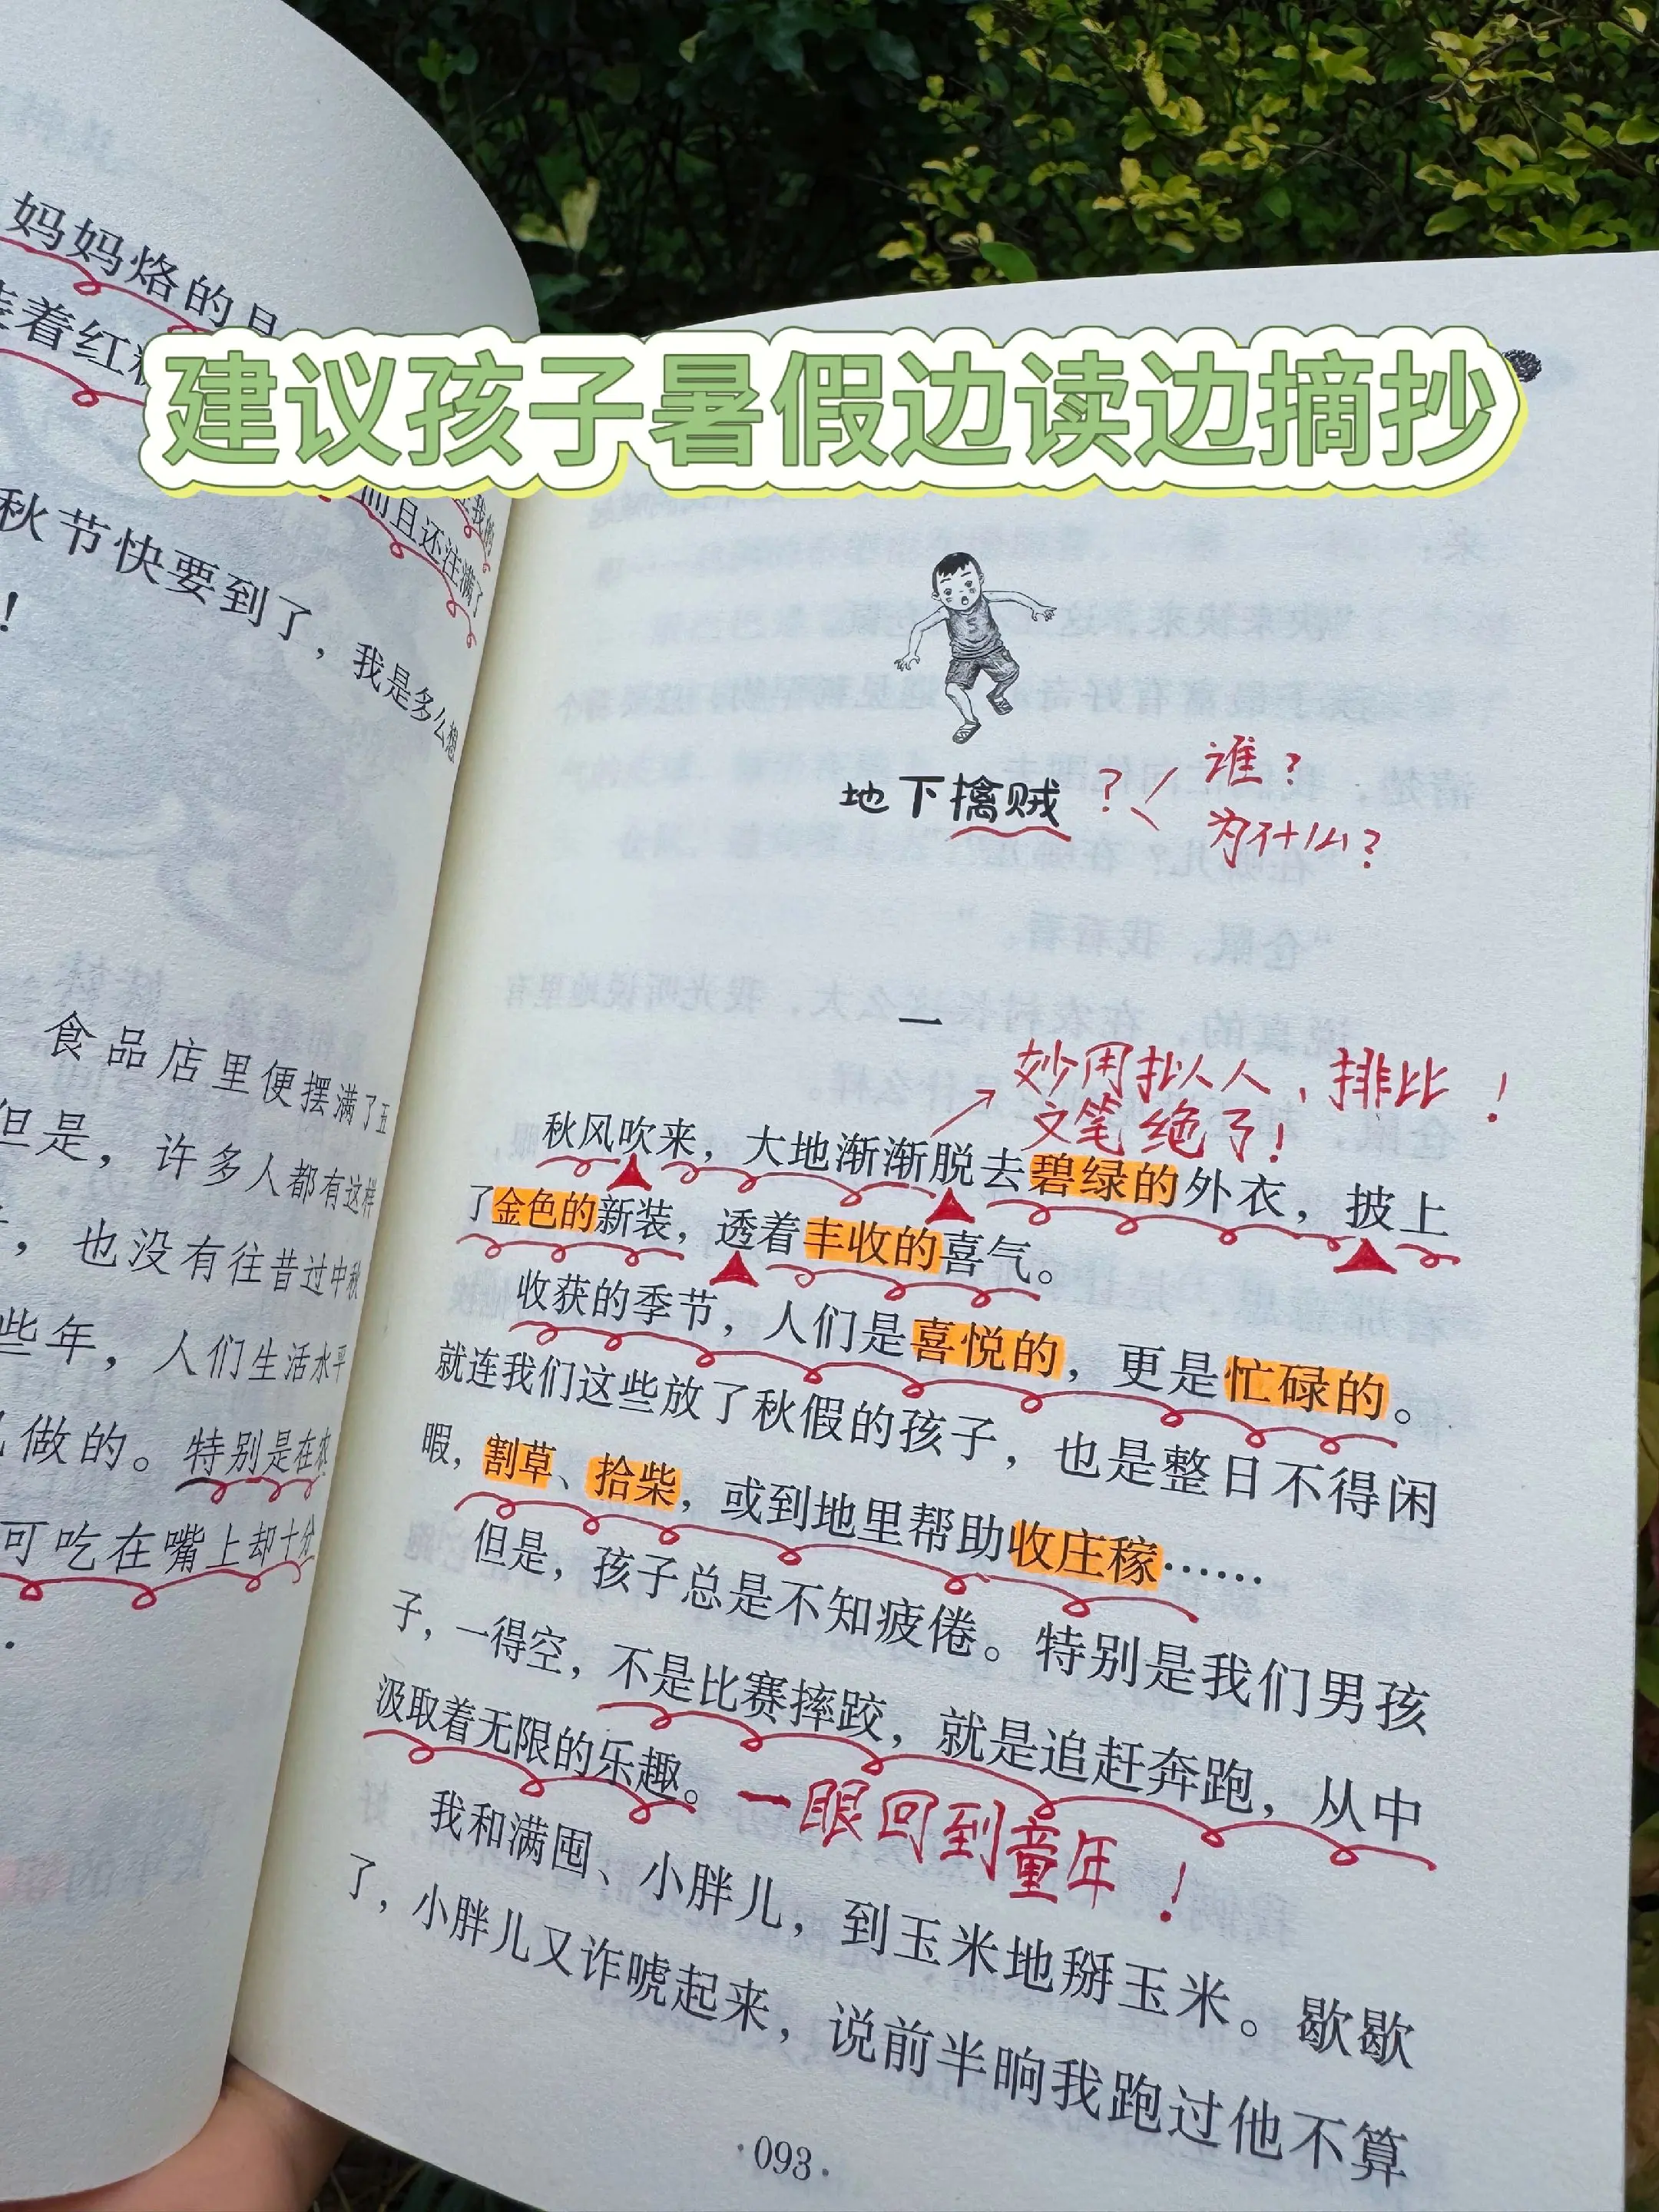 建议孩子暑假边读边摘抄
妈妈烙的是
着红
而且还注满了
秋节快要到了，我是多么想
！
食品店里便摆满了五
但是，许多人都有这样
，也没有往昔过中秋
些年，人们生活水平
做的。特别是在农
可吃在嘴上却十分
地下擒贼
？谁？
为什么？
一
妙用拟人、排比！
文笔绝了！
秋风吹来，大地渐渐脱去碧绿的外衣，披上
了金色的新装，透着丰收的喜气。
收获的季节，人们是喜悦的，更是忙碌的。
就连我们这些放了秋假的孩子，也是整日不得闲
暇，割草、拾柴，或到地里帮助收庄稼……
但是，孩子总是不知疲倦。特别是我们男孩
子，一得空，不是比赛摔跤，就是追赶奔跑，从中
汲取着无限的乐趣。
一眼回到童年！
我和满囤、小胖儿，到玉米地掰玉米。歇歇
了，小胖儿又诈唬起来，说前半晌我跑过他不算
·093·